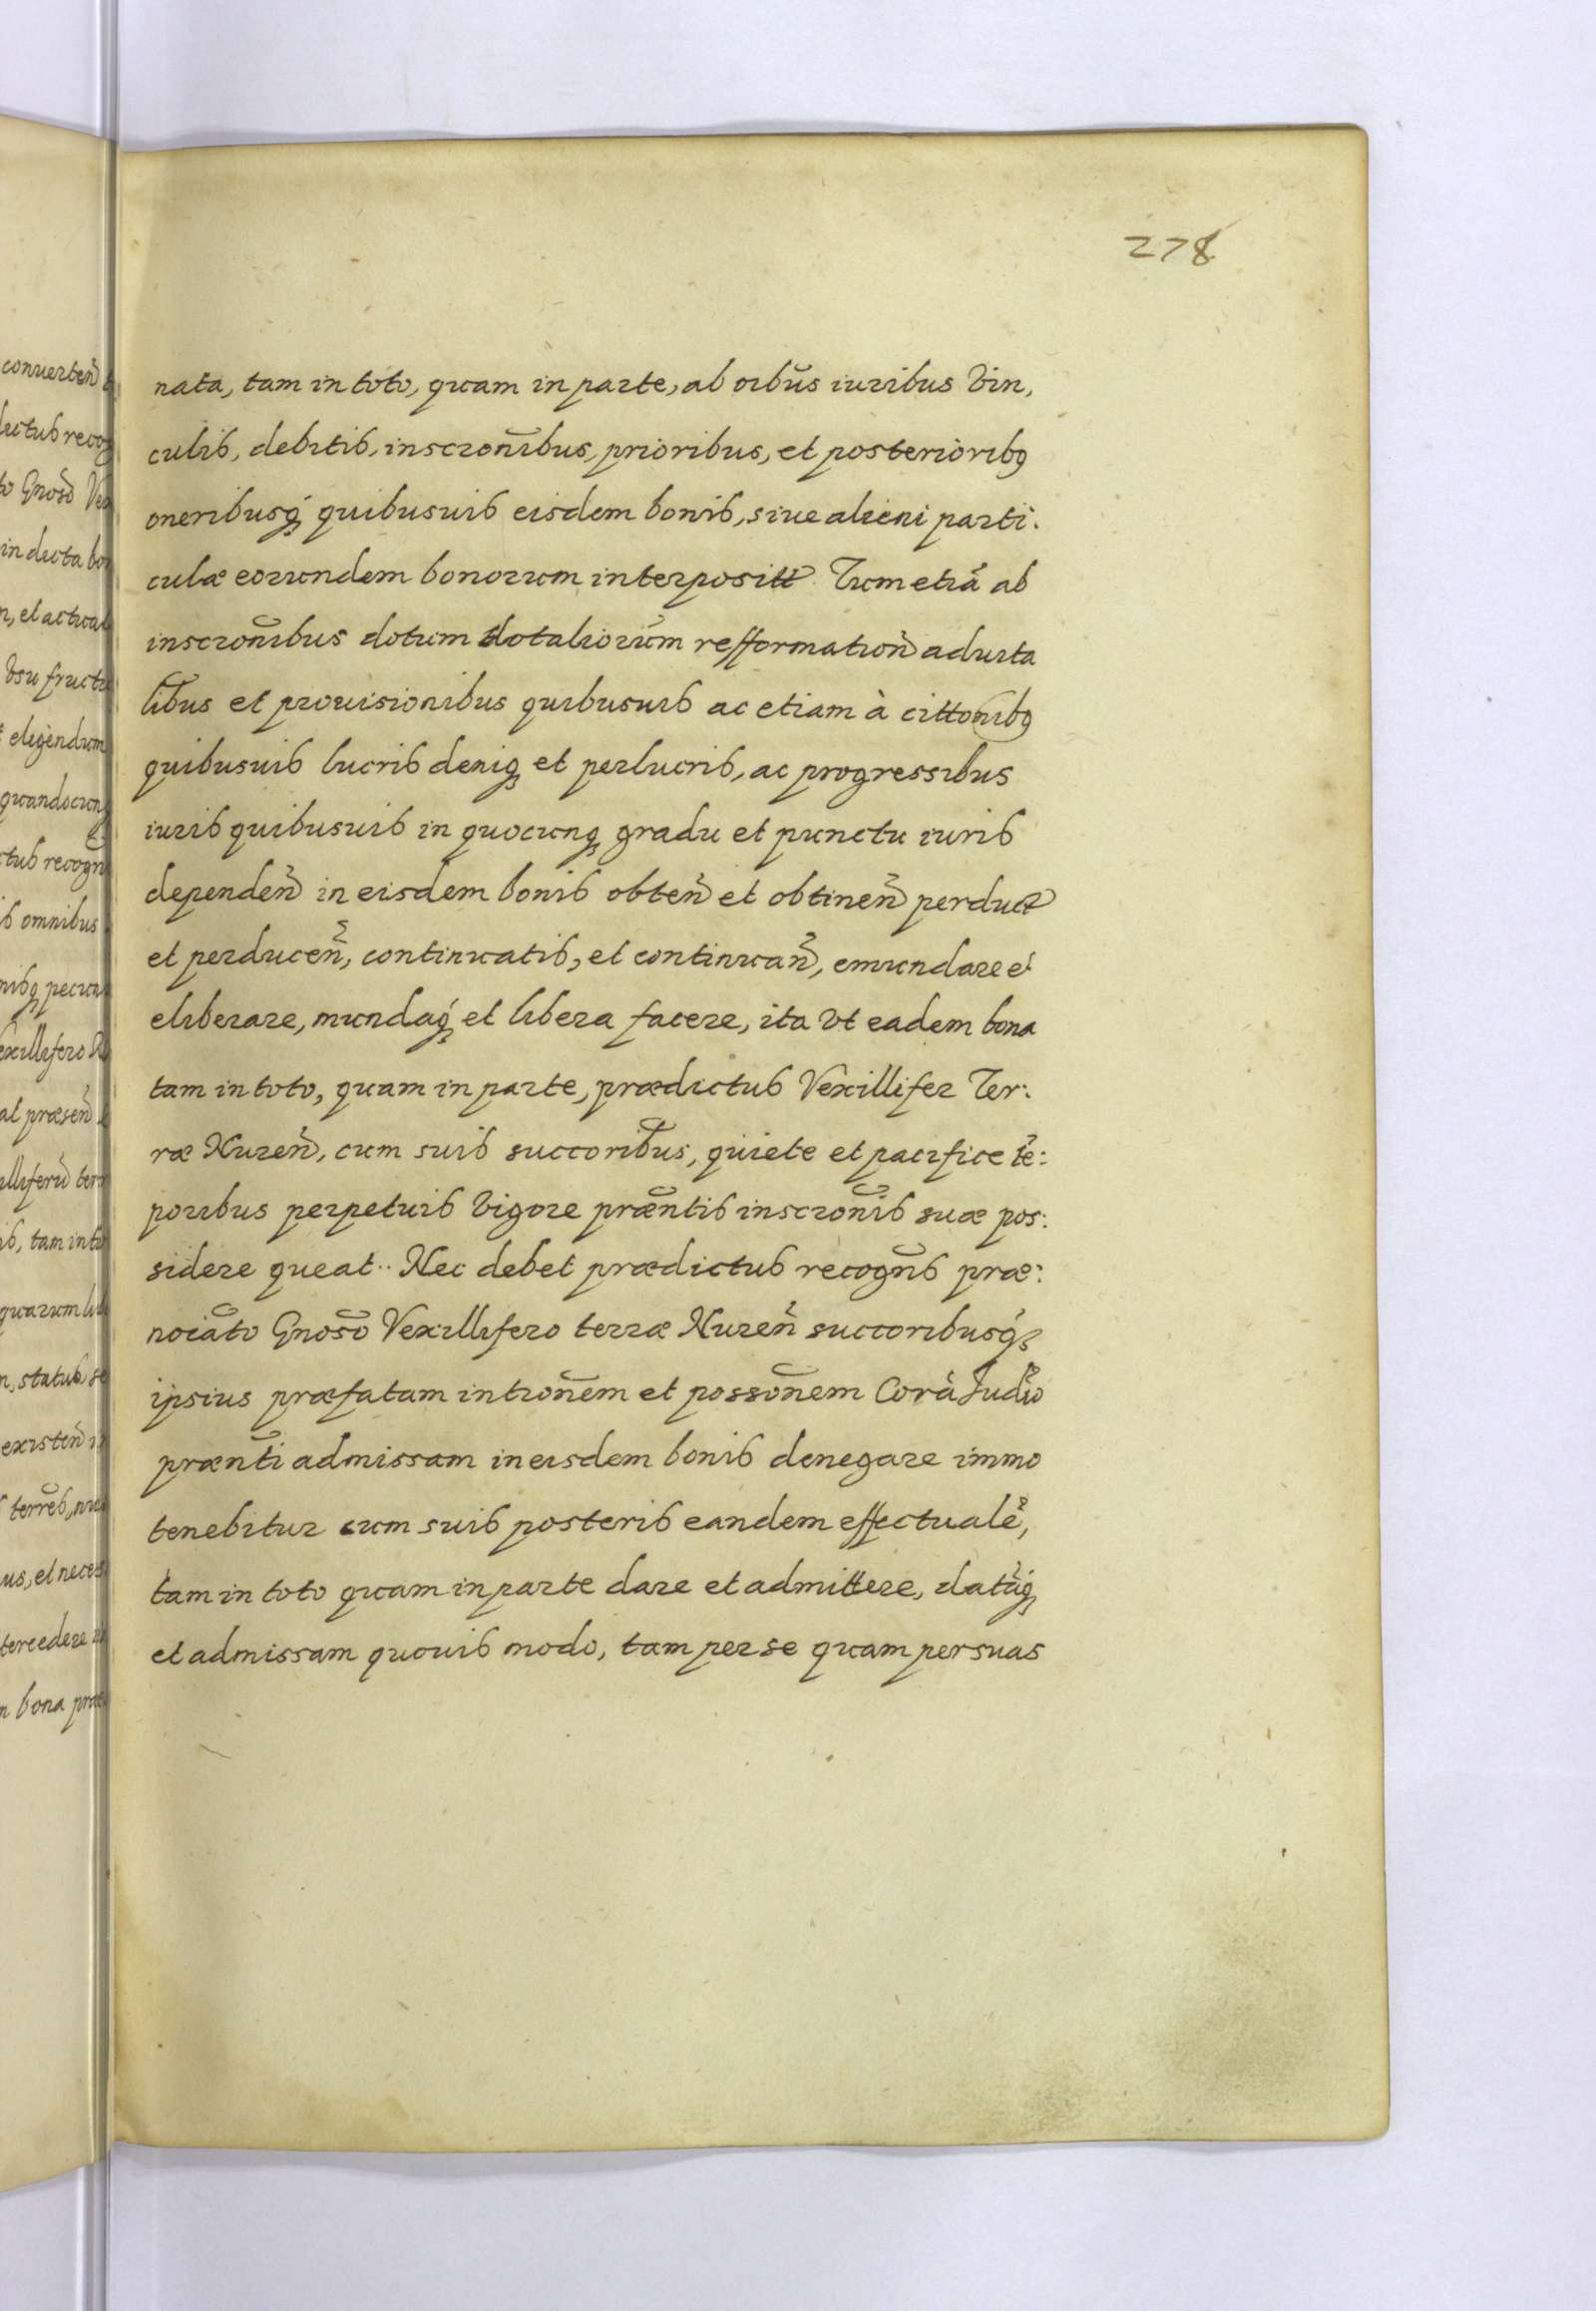 278
nata, tam in toto, quam in parte, ab oibūs iuribus Vin,
culis, debitis, inscronĩbus, prioribus, et posterioribq
oneribusq́ quibusuis eisdem bonis, siue alieni parti:
culæ eorundem bonorum interposit Tum etiã ab
inscronĩbus dotum dotaliorum refformation̄ aduita
libus et prouisionibus quibusuis ac etiam à cittonibq
quibusuis lucris deniq et perlucris, ac progressibus
iuris quibusuis in quocunq gradu et punctu iuris
dependen̄ in eisdem bonis obten̄ et obtinen̄ perduct
et perducen̄, continuatis, et continuan̄, emundare et
eliberare, mundaq́ et libera facere, ita Vt eadem bona
tam in toto, quam in parte, prædictus Vexillifer Ter:
ræ Nuren̄, cum suis succoribus, quiete et pacifice tẽ:
poribus perpetuis Vigore præntis inscronĩs suæ pos:
sidere queat.. Nec debet prædictus recogn̄s præ:
noiãto Gnoso Vexillifero terræ Nuren̄ succoribusq́
ipsius præfatam intronẽm et possonẽm Corã Judio
prænti admissam in eisdem bonis denegare immo
tenebitur cum suis posteris eandem effectualẽ,
tam in toto quam in parte dare et admittere, datãq́
et admissam quouis modo, tam per se quam per suas
convertẽn
lictus recog
to Gnoso Vex
in dicta bo
n, et actual
Vsu fructu
eligendum
quandocun
ctus recogn
is omnibus
nibq pecun
exillifero N
al præsen̄
illiferũ ter
is, tam in to
quarum li
n, status se
existen̄ i
us, et neces
tercedere
n bona præ